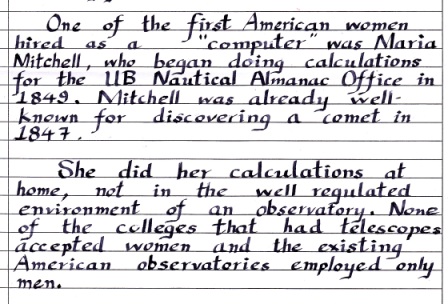 One of the first American women
hired as a "computer" was Maria
Mitchell, who began doing calculations
for the UB Nautical Almanac Office in
1849. Mitchell was already well-
known for discovering a comet in
1847.
She did her calculations at
home, not in the well regulated
environment of an observatory. None
of the colleges that had telescopes
accepted women and the existing
American observatories employed only
men.